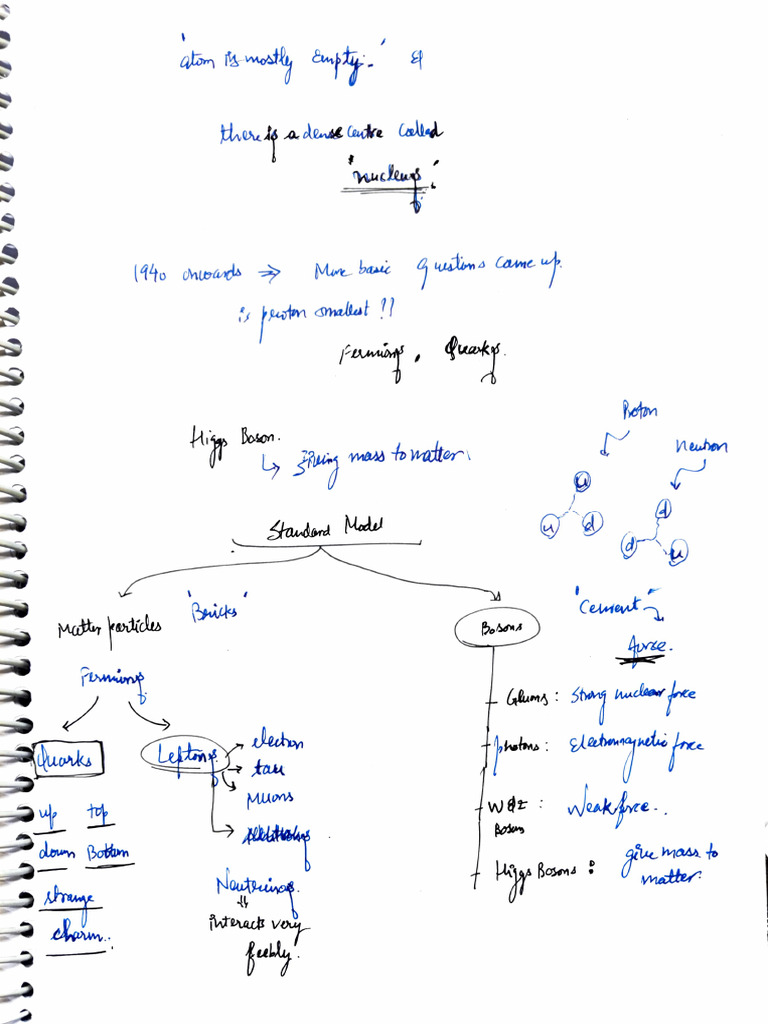 'atom is mostly empty.' &
there is a dense centre called
'nucleus'.
1940 onwards ⇒ More basic questions came up.
is proton smallest !!
Fermions, Quarks.
Higgs Boson.
↳ giving mass to matter.
Proton
u
u d
Neutron
d
d u
Standard Model
Matter particles
"Bricks"
Fermions
Quarks
up top
down Bottom
strange
charm.
Leptons
→ electron
→ tau
→ Muons
Neutrinos
⇓
interacts very
feebly.
Bosons
"Cement"
force.
Gluons : Strong nuclear force
photons : Electromagnetic force
W & Z : Weak force.
Bosons
Higgs Bosons : give mass to
matter.